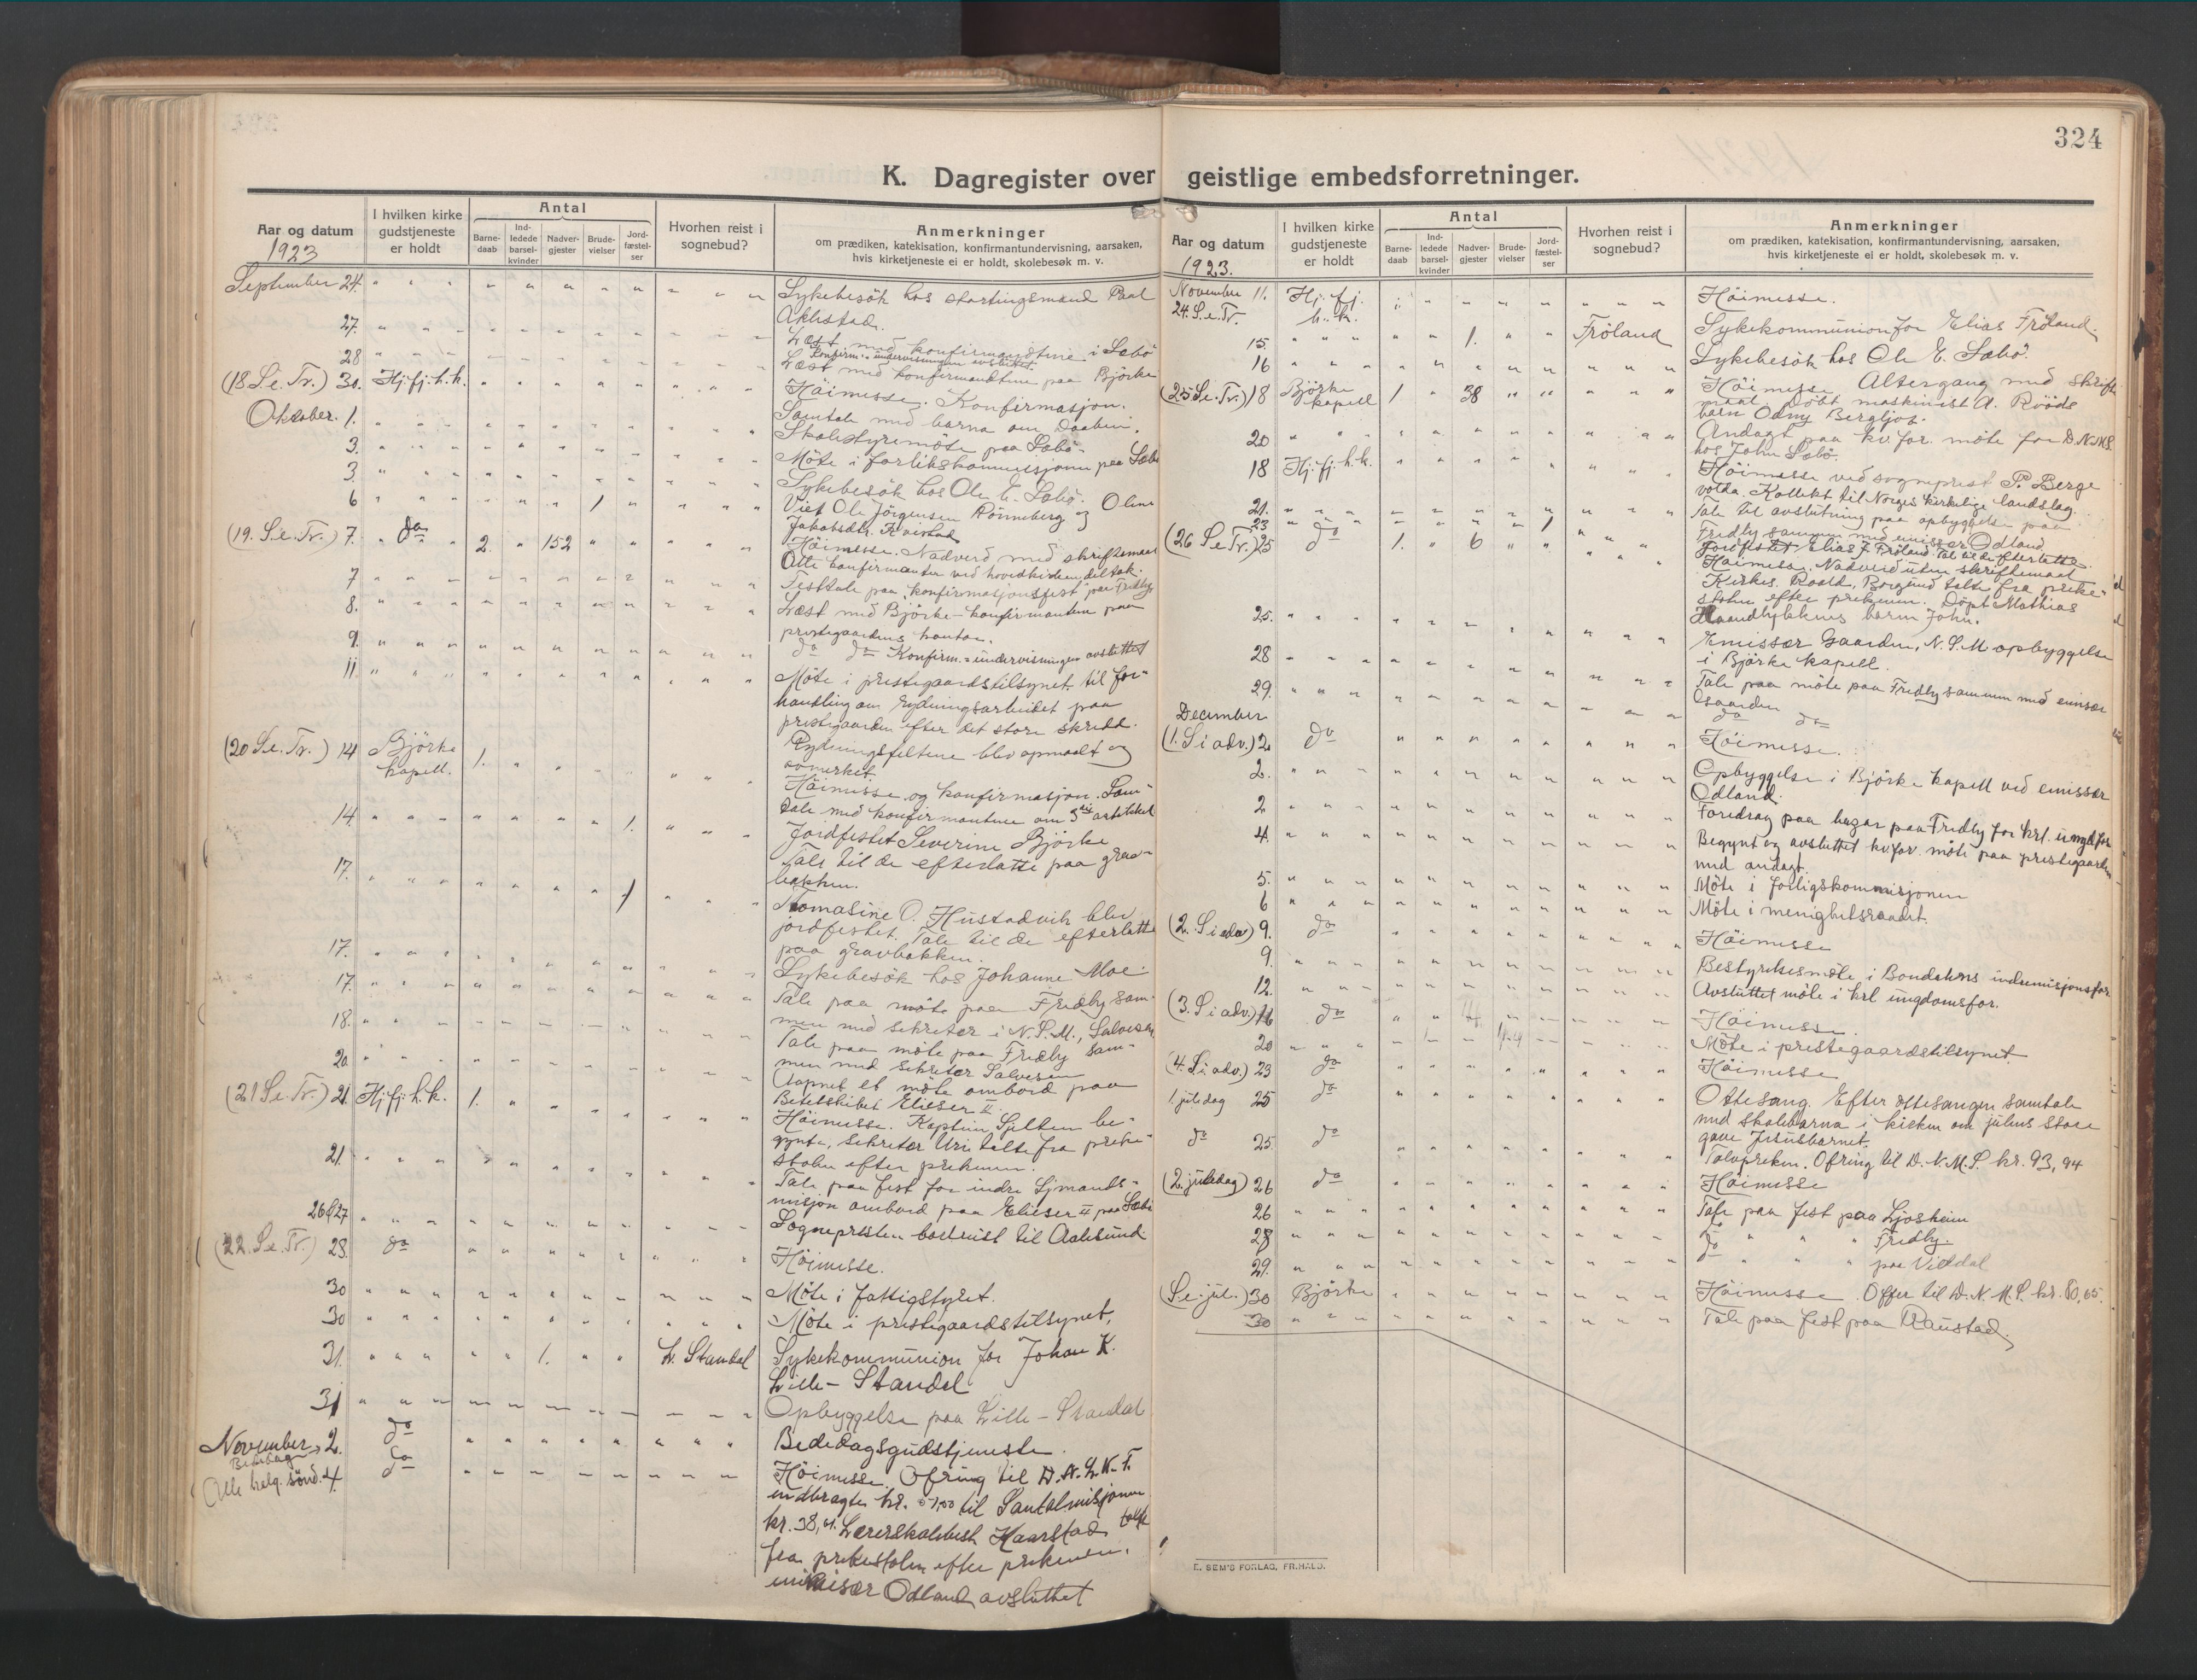 324
K. Dagregister over geistlige embedsforretninger.
Aar og datum
1923
I hvilken kirke gudstjeneste er holdt
Antal
Barne-daab
Ind-ledede barsel-kvinder
Nadver-gjester
Brude-vielser
Jord-fæstel-ser
Hvorhen reist i sognebud?
Anmerkninger
om prædiken, katekisation, konfirmantundervisning, aarsaken,
hvis kirketjeneste ei er holdt, skolebesøk m. v.
September 24. Sykebesök hos stortingsmand Paal
Aklestad.
27. Læst med konfirmantene i Sæbö
Konfirm.-undervisningen avsluttet.
28 Læst med konfirmantene paa Björke
(18 S. e. Tr.) 30. Hj. fj. h. k. Höimesse. Konfirmasjon.
Oktober. 1. Samtale med barna om Daaben.
3. Skolestyremöte paa Sæbö
3. Möte i forlikskommissjonen paa Sæbö
6 Sykebesök hos Ole E. Sæbö.
1 Viet Ole Jörgensen Rönneberg og Oline
Jakobsdtr. Kvistad
(19. S. e. Tr.) 7. do 2. 152 Höimesse. Nadverd med skriftemaal
Atte konfirmanter ved hovedkirken deltok.
7 Festtale paa konfirmasjonsfest paa Fredly
8. Læst med Björke-konfirmantene paa
prestegaardens kontor.
9. do do Konfirm.-undervisningen avsluttet
11 Möte i prestegaardstilsynet til for-
handling om rydningsarbeidet paa
prestegaarden efter det store skredd.
Rydningsfeltene blev opmaalt og
avmerket.
(20 S. e. Tr.) 14 Björke kapell. 1. Höimesse og konfirmasjon. Sam-
tale med konfirmantene om 3die artikkel
14. 1. Jordfestet Severine Björke
Tale til de efterlatte paa grav-
bakken.
17. 1 Tomasine O. Hustadvik blev
jordfestet. Tale til de efterlatte
paa gravbakken.
17. Sykebesök hos Johanne Moe.
17. Tale paa möte paa Fredly sam-
men med sekretær i N. S. M., Salvesen
18. Tale paa möte paa Fredly sam-
men med sekretær Salvesen
20. Aapnet et möte ombord paa
Betelskibet Elieser II
(21 S. e. Tr.) 21. Hj. fj. h. k. 1. Höimesse. Kaptein Sjeltem be-
gynte, sekretær Uri talte fra preke-
stolen efter prekenen.
21. Tale paa fest for indre Sjömands-
misjon ombord paa Elieser II paa Sæbö
26 & 27 Sognepresten bortreist til Aalesund
(22. S. e. Tr.) 28. do Höimesse.
30 Möte i fattigstyret.
30 Möte i prestegaardstilsynet.
31. 1. L. Standal Sykekommunion for Johan K.
Lille-Standal
31 Opbyggelse paa Lille-Standal
November 2. do Bededagsgudstjeneste.
Bededag
Alle helg. sönd. 4. do Höimesse. Ofring til D. N. L. K. F.
indbragte kr. til Santalmisjonen
kr. 38, Lærerskolebest. Haarstad talte
fra prekestolen efter prekenen.
emissær Odland avsluttet
Aar og datum
1923.
I hvilken kirke gudstjeneste er holdt
Antal
Barne-daab
Ind-ledede barsel-kvinder
Nadver-gjester
Brude-vielser
Jord-fæstel-ser
Hvorhen reist i sognebud?
Anmerkninger
om prædiken, katekisation, konfirmantundervisning, aarsaken,
hvis kirketjeneste ei er holdt, skolebesøk m. v.
November 11. Hj. fj. h. k. Höimesse.
24. S. e. Tr.
15. 1. Fröland Sykekommunion for Elias Fröland.
16 Sykebesök hos Ole E. Sæbö.
(25 S. e. Tr.) 18 Björke kapell 1 38 Höimesse Altergang med skrifte-
maal. Döbt maskinist A. Rööds
barn Odny Bergljot.
20 Andagt paa kv. for. möte for D. N. M. S.
hos John Sæbö.
18 Hj. fj. h. k. Höimesse ved sogneprest P. Berge
Volda. Kollekt til Norges kirkelige landslag.
21. Tale til avslutning paa opbyggelse paa
Fredly sammen med emissær Odland
23 1 Jordfestet Elias J. Fröland. Tale til de efterlatte.
(26 S. e. Tr.) 25 do 1. 6 Höimesse. Nadverd uten skriftemaal
Kirkes. Roald, Borgund talte fra preke-
stolen efter prekenen. Döpt Mathias
barn John.
25. Emissær Gaarden, N. S. M. opbyggelse
i Björke kapell.
28 Tale paa möte paa Fredly sammen med emissær
Gaarden
29. do do
December
(1. S. i adv.) 2. do Höimesse.
2. Opbyggelse i Björke kapell ved emissær
Odland.
2 Foredrag paa bazar paa Fredly for krl. ungd. for
4. Begynt og avsluttet kv. for. möte paa prestegaarden
med andagt.
5. Möte i forligskommisjonen
6 Möte i menighetsraadet.
(2. S. i adv) 9. do Höimesse
9. Bestyrelsesmöte i Bondalens indremisjonsfor
12. Avsluttet möte i krl. ungdomsfor.
(3. S. i adv.) 16 do Höimesse.
20 Möte i prestegaardstilsynet
(4. S. i adv.) 23 do Höimesse
1. juledag 25 do Ottesang. Efter ottesangen samtale
med skolebarna i kirken om julens store
gave Jesusbarnet.
do 25. do Tolvpreken. Ofring til D. N. M. S. kr. 93, 94
(2. juledag) 26 do Höimesse
26 Tale paa fest paa Ljosheim
28 do " " " Fredly.
29. do " " " paa Viddal
(S. e. jul.) 30 Björke Höimesse. Offer til D. N. M. S. kr.
30 Tale paa fest paa Raustad.
E. SEM'S FORLAG, FR.HALD.